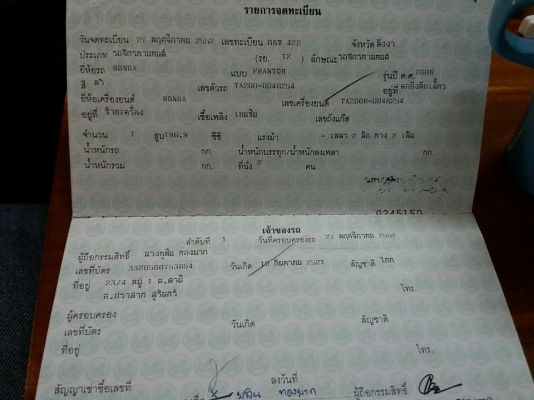 รายการจดทะเบียน
วันจดทะเบียน 27 พฤศจิกายน 2552 เลขทะเบียน กอช 422 จังหวัด พังงา
ประเภท รถจักรยานยนต์ (รย. 12 ) ลักษณะ รถจักรยานยนต์
ยี่ห้อรถ HONDA แบบ PHANTOM รุ่นปี ค.ศ. 2008
สี ดำ เลขตัวรถ TA200-0046254 อยู่ที่
ยี่ห้อเครื่องยนต์ HONDA เลขเครื่องยนต์ TA200E-0046254
อยู่ที่ เชื้อเพลิง เบนซิน เลขถังแก๊ส
จำนวน 1 สูบ 196.9 ซีซี แรงม้า - เพลา 2 ล้อ ยาง 2 เส้น
น้ำหนักรถ กก. น้ำหนักบรรทุก/น้ำหนักลงเพลา กก.
น้ำหนักรวม กก. ที่นั่ง 2 คน
เจ้าของรถ
ลำดับที่ 1 วันที่ครอบครองรถ 27 พฤศจิกายน 2552
ผู้ถือกรรมสิทธิ์
เลขที่บัตร วันเกิด 2521 สัญชาติ ไทย
ที่อยู่ 23/4 หมู่ 1 โทร.
อ.ปราสาท สุรินทร์
ผู้ครอบครอง
เลขที่บัตร วันเกิด สัญชาติ
ที่อยู่ โทร.
สัญญาเช่าซื้อเลขที่ ลงวันที่
ผู้ถือกรรมสิทธิ์